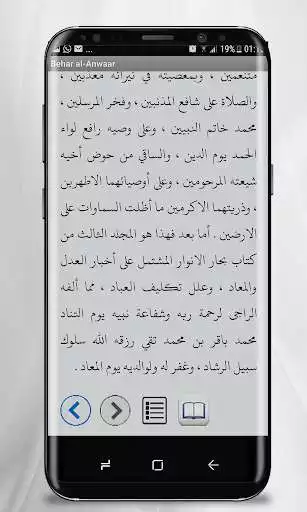 ... 19% 01:1
Behar al-Anwaar
متنعمين ، وبمعصيته في نيرانه معذبين ،
والصلاة على شافع المذنبين ، وفخر المرسلين ،
محمد خاتم النبيين ، وعلى وصيه رافع لواء
الحمد يوم الدين ، والساقي من حوض أخيه
شيعته المرحومين ، وعلى أوصيائهما الاطهرين
، وذريتهما الاكرمين ما أظلت السماوات على
الارضين . أما بعد فهذا هو المجلد الثالث من
كتاب بحار الانوار المشتمل على أخبار العدل
والمعاد ، وعلل تكليف العباد ، مما ألفه
الراجى لرحمة ربه وشفاعة نبيه يوم التناد
محمد باقر بن محمد تقي رزقه الله سلوك
سبيل الرشاد ، وغفر له ولوالديه يوم المعاد .